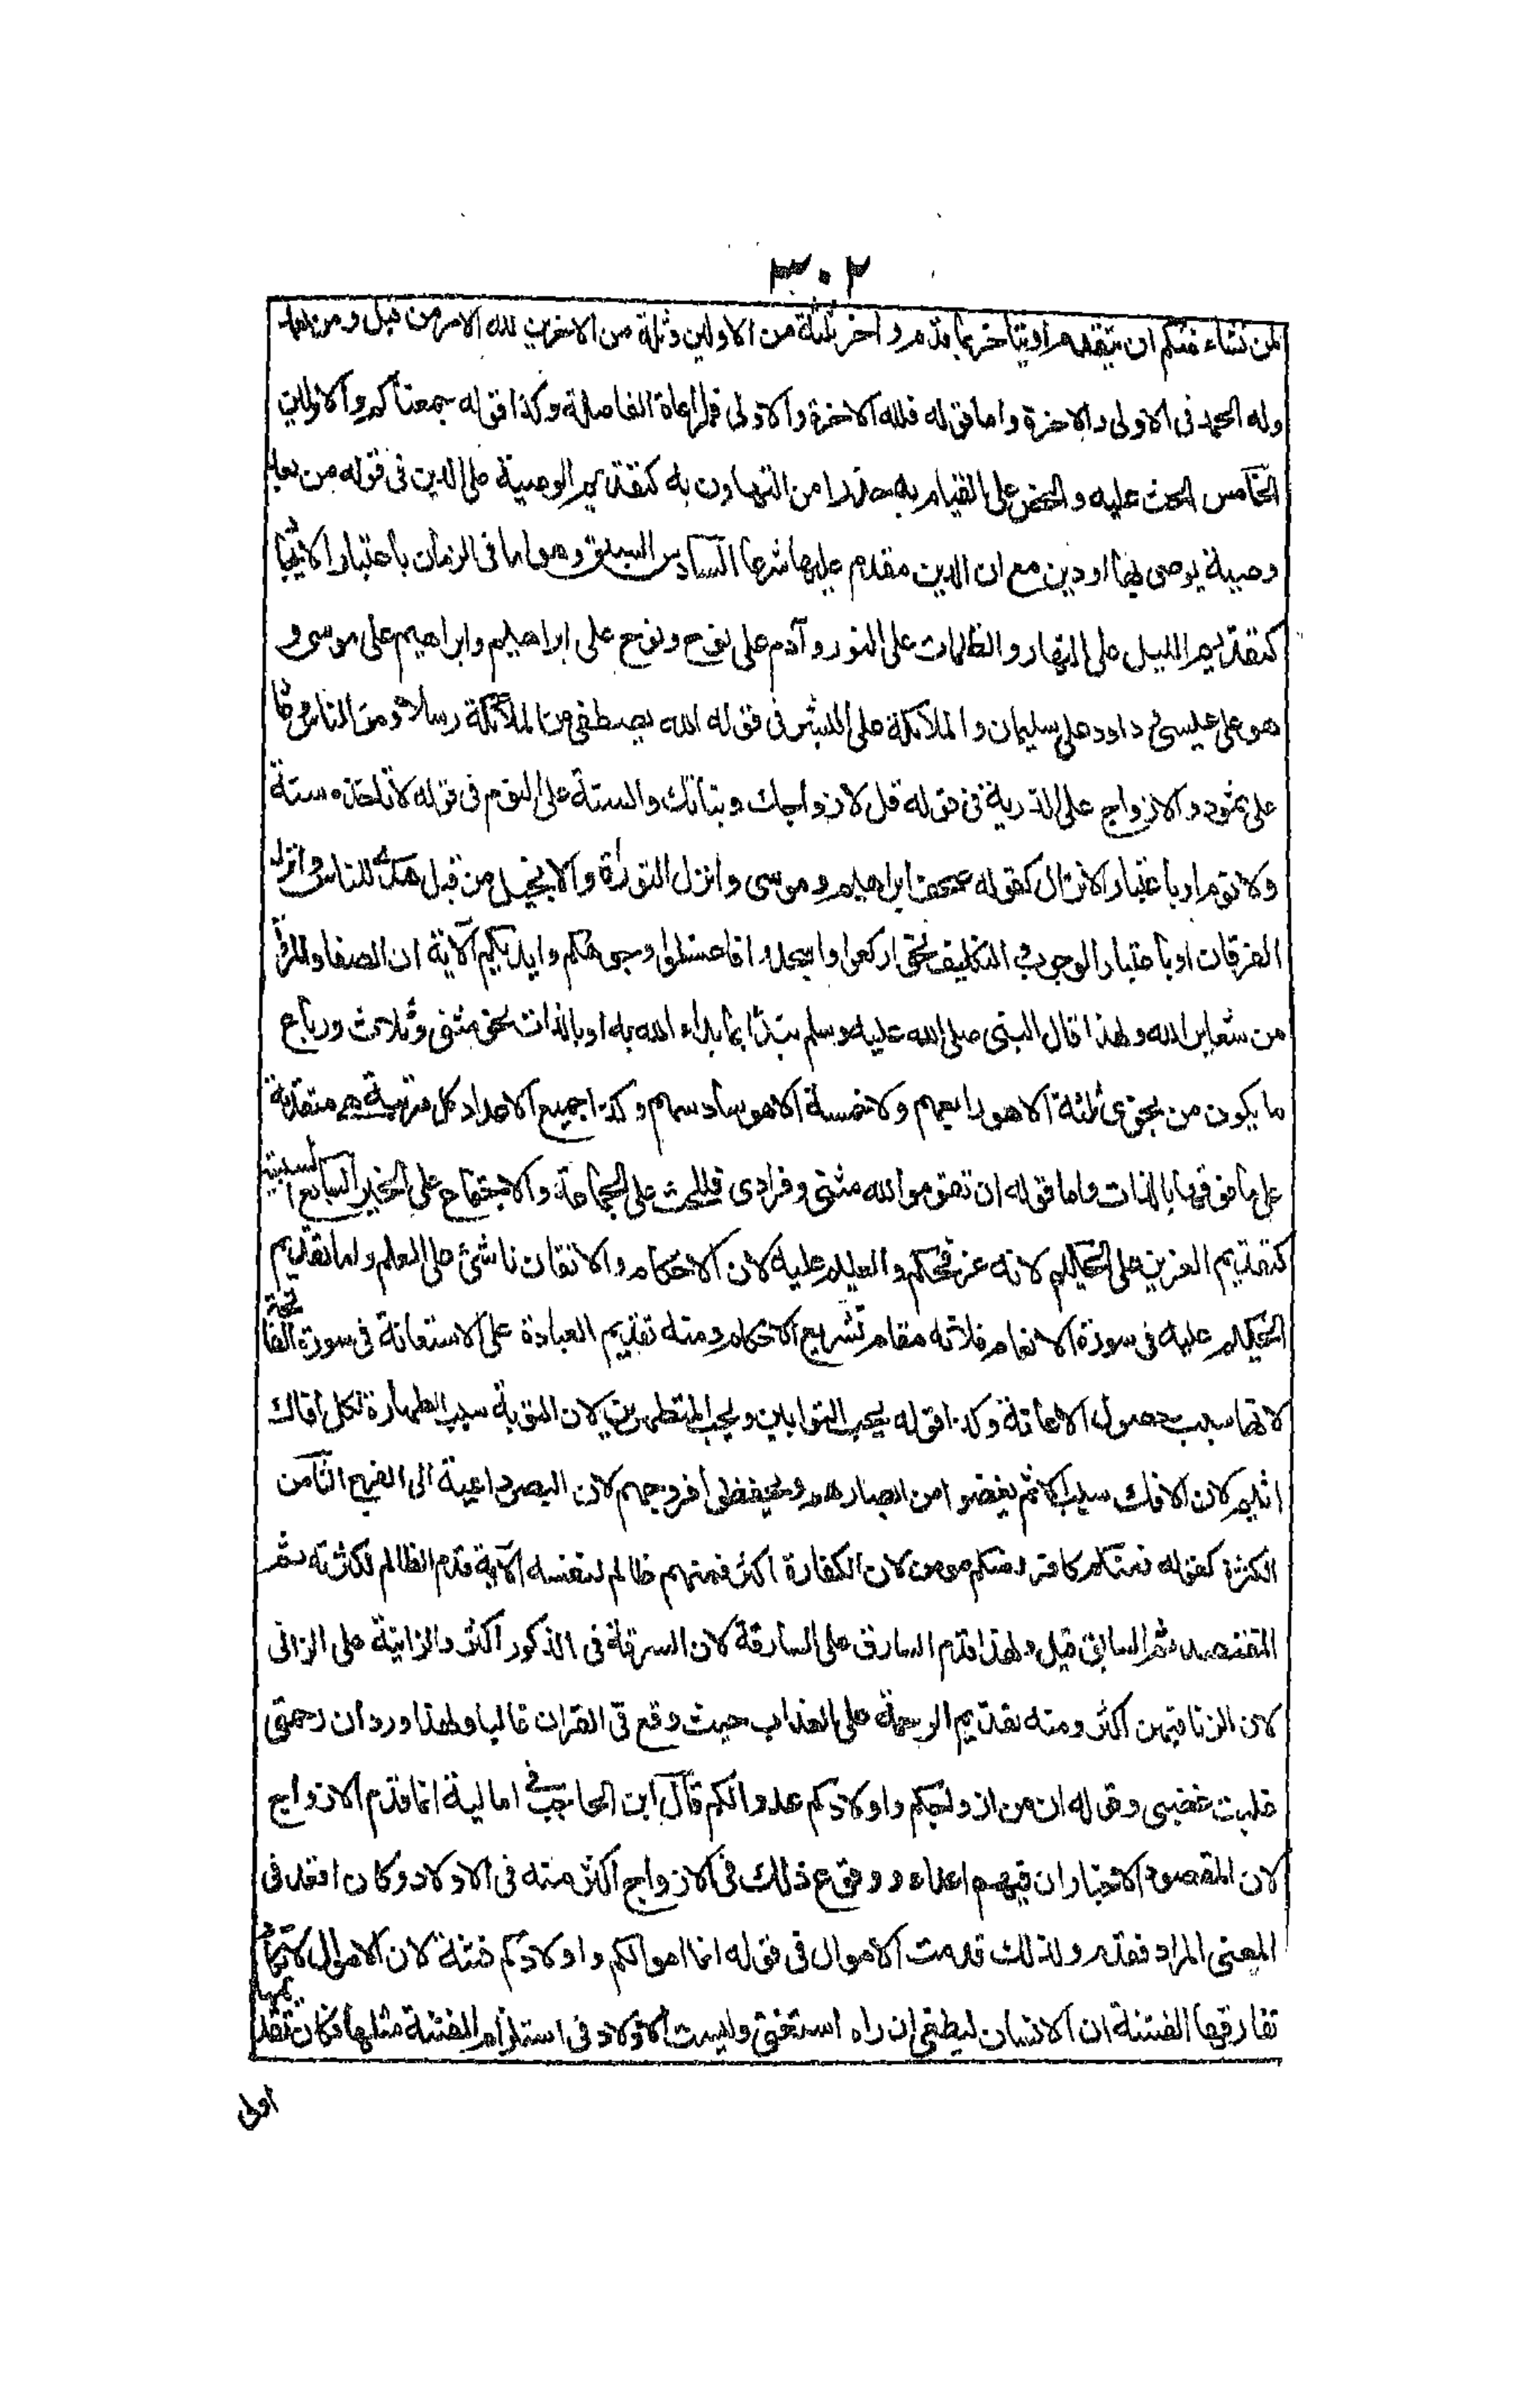 ٣٠٢
لمن شاء منكم ان يتقدم او يتاخر بما قدم واخر ثلة من الاولين وثلة من الاخرين لله الامر من قبل ومن بعد
وله الحمد فى الاولى والاخرة واما قوله فلله الاخرة والاولى فلمراعاة الفاصلة وكذا قوله جمعناكم والاولين
الخامس الحث عليه والحض على القيام به حذرا من التهاون به كتقديم الوصية على الدين فى قوله من بعد
وصية يوصى بها او دين مع ان الدين مقدم عليها شرعا السادس السبق وهو اما فى الزمان باعتبار الايجا
كتقديم الليل على النهار والظلمات على النور وآدم على نوح ونوح على ابراهيم وابراهيم على موسى و
هو على عيسى وداود على سليمان والملائكة على البشر فى قوله الله يصطفى من الملائكة رسلا ومن الناس وعا
على ثمود والازواج على الذرية فى قوله قل لازواجك وبناتك والسنة على النوم فى قوله لا تاخذه سنة
ولا نوم او باعتبار الانزال كقوله صحف ابراهيم وموسى وانزل التوراة والانجيل من قبل هدى للناس وانزل
الفرقان او باعتبار الوجوب والتكليف نحو اركعوا واسجدوا فاغسلوا وجوهكم وايديكم الآية ان الصفا والمرو
من شعاير الله ولهذا قال النبى صلى الله عليه وسلم نبدأ بما بداء الله به او بالذات نحو مثنى وثلاث ورباع
ما يكون من نجوى ثلثة الا هو رابعهم ولا خمسة الا هو سادسهم وكذا جميع الاعداد كل مرتبة هى متقدمة
على ما فوقها بالذات واما قوله ان تقوموا لله مثنى وفرادى فللحث على الجماعة والاجتماع على الخير السابع السببية
كتقديم العزيز على الحكيم لانه عز فحكم والعليم عليه لان الاحكام والاتقان ناشئ على العلم واما تقديم
الحكيم عليه فى سورة الانعام فلانه مقام تشريع الاحكام ومنه تقديم العبادة على الاستعانة فى سورة الفاتحة
لانها سبب حصول الاعانة وكذا قوله يحب التوابين ويحب المتطهرين لان التوبة سبب الطهارة لكل افاك
اثيم لان الافك سبب الاثم يغضوا من ابصارهم ويحفظوا فروجهم لان البصر داعية الى الفرج الثامن
الكثرة كقوله فمنكم كافر ومنكم مومن لان الكفارة اكثر فمنهم ظالم لنفسه الآية قدم الظالم لكثرته ثم
المقتصد ثم السابق قيل ولهذا قدم السارق على السارقة لان السرقة فى الذكور اكثر والزانية على الزانى
لان الزنا فيهن اكثر ومنه تقديم الرحمة على العذاب حيث وقع فى القران غالبا ولهذا ورد ان رحمتى
غلبت غضبى وقوله ان من ازواجكم واولادكم عدوا لكم قال ابن الحاجب فى امالية انما قدم الازواج
لان المقصود الاخبار ان فيهم اعداء ووقوع ذلك فى الازواج اكثر منه فى الاولاد وكان اقعد فى
المعنى المراد فقدم ولذلك قدمت الاموال فى قوله انما اموالكم واولادكم فتنة لان الاموال لا تكاد
تفارقها الفتنة ان الانسان ليطغى ان راه استغنى وليست الاولاد فى استلزام الفتنة مثلها فكان تقديمها
اولى